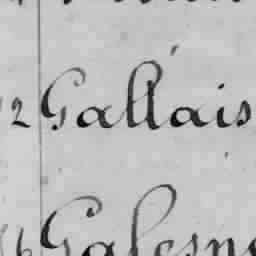 2 Gallais
6 Galesne